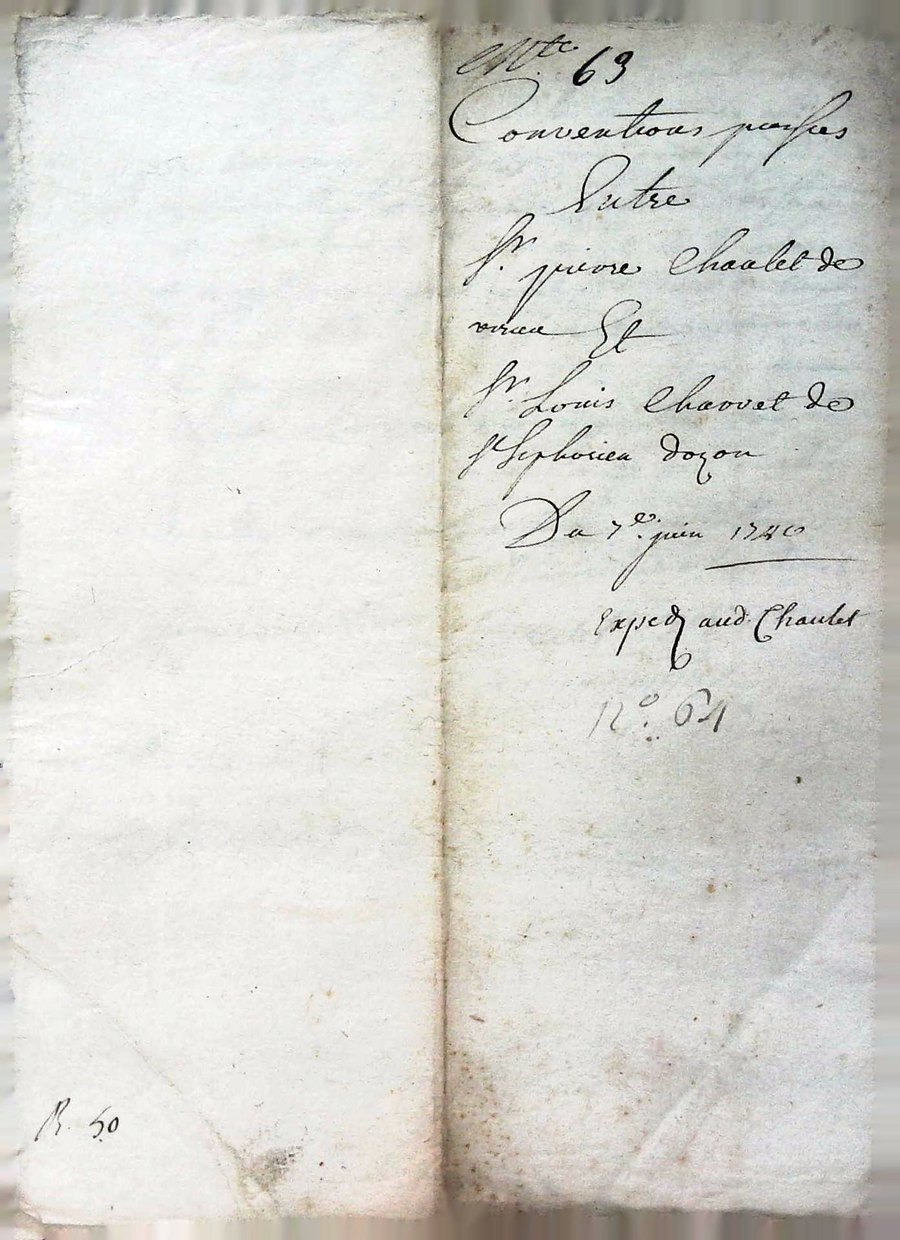 Mte. 63
Conventions passées
Entre
Sr. pierre Chaulet de
virieu Et
Sr. Louis Chavvet de
St Siphorien dozon
Du 7e. juin 1780
Exped aud Chaulet
No. 64
R. 50